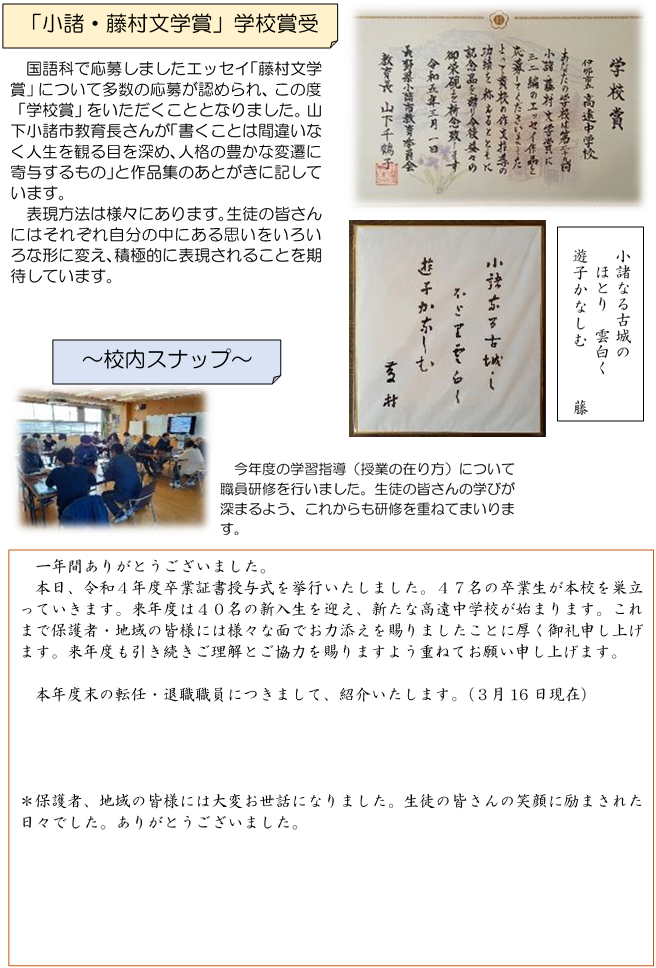 「小諸・藤村文学賞」学校賞受
国語科で応募しましたエッセイ「藤村文学
賞」について多数の応募が認められ、この度
「学校賞」をいただくこととなりました。山
下小諸市教育長さんが「書くことは間違いな
く人生を観る目を深め、人格の豊かな変遷に
寄与するもの」と作品集のあとがきに記して
います。
表現方法は様々にあります。生徒の皆さん
にはそれぞれ自分の中にある思いをいろい
ろな形に変え、積極的に表現されることを期
待しています。
学校賞
伊那市立 高遠中学校
あなたの学校は第
小諸・藤村文学賞に
三二編のエッセイ作品を
応募してくださいました
よって貴校の作文指導の
功績を称えるとともに
記念品を贈り今後益々の
御発展を祈念致します
令和五年三月一日
長野県小諸市教育委員会
教育長 山下千鶴子
小諸なる古城の
ほとり 雲白く
遊子かなしむ
藤
小諸なる古城し
ほとり雲白く
遊子かなしむ
藤村
～校内スナップ～
今年度の学習指導（授業の在り方）について
職員研修を行いました。生徒の皆さんの学びが
深まるよう、これからも研修を重ねてまいりま
す。
一年間ありがとうございました。
本日、令和４年度卒業証書授与式を挙行いたしました。４７名の卒業生が本校を巣立
っていきます。来年度は４０名の新入生を迎え、新たな高遠中学校が始まります。これ
まで保護者・地域の皆様には様々な面でお力添えを賜りましたことに厚く御礼申し上げ
ます。来年度も引き続きご理解とご協力を賜りますよう重ねてお願い申し上げます。
本年度末の転任・退職職員につきまして、紹介いたします。（３月16日現在）
＊保護者、地域の皆様には大変お世話になりました。生徒の皆さんの笑顔に励まされた
日々でした。ありがとうございました。